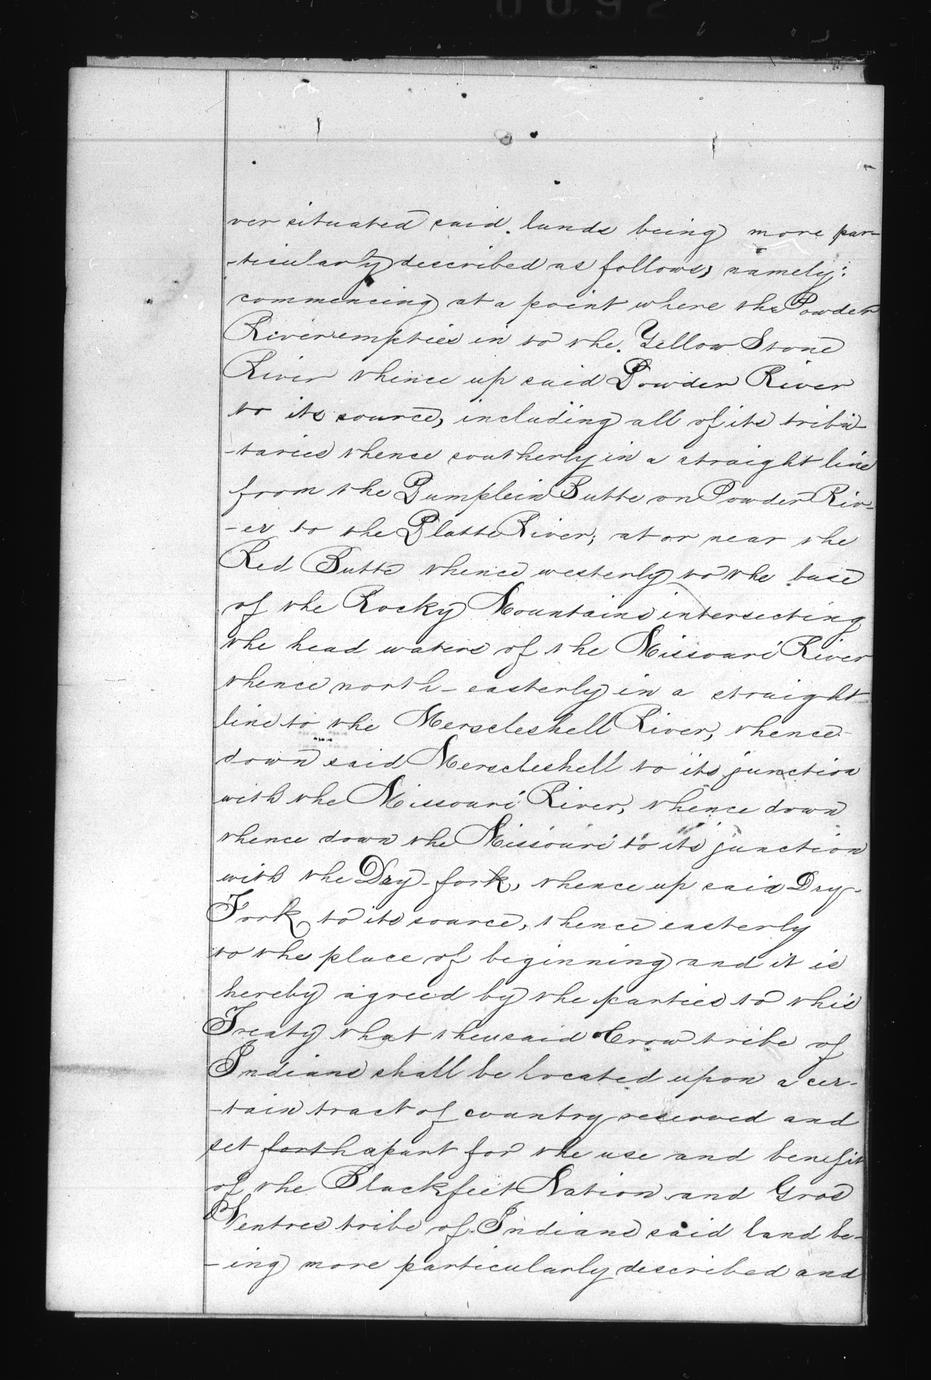 0092
ver situated said lands being more par-
-ticularly described as follows, namely:
commencing at a point where the Powder
River empties in to the Yellow Stone
River thence up said Powder River
to its source, including all of its tribu-
-taries thence southerly in a straight line
from the Pumplein Butte on Powder Riv-
-er to the Platte River, at or near the
Red Butte thence westerly to the base
of the Rocky Mountains intersecting
the head waters of the Missouri River
thence north-easterly in a straight
line to the Merscleshell River, thence
down said Merscleshell to its junction
with the Missouri River, thence down
thence down the Missouri to its junction
with the Dry-fork, thence up said Dry-
Fork to its source, thence easterly
to the place of beginning and it is
hereby agreed by the parties to this
Treaty that the said Crow tribe of
Indians shall be located upon a cer-
-tain tract of country reserved and
set forth apart for the use and benefit
of the Blackfeet Nation and Gros
Ventres tribe of Indians said land be-
-ing more particularly described and